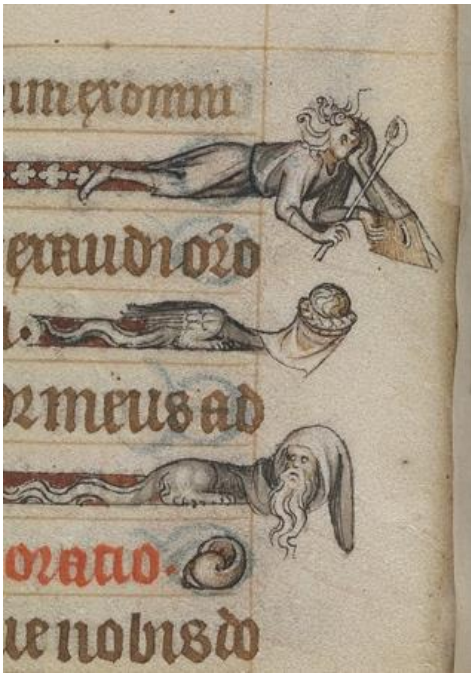 ex omni
exaudi orõ
a.
or meus ad
oratio.
ue nobis do